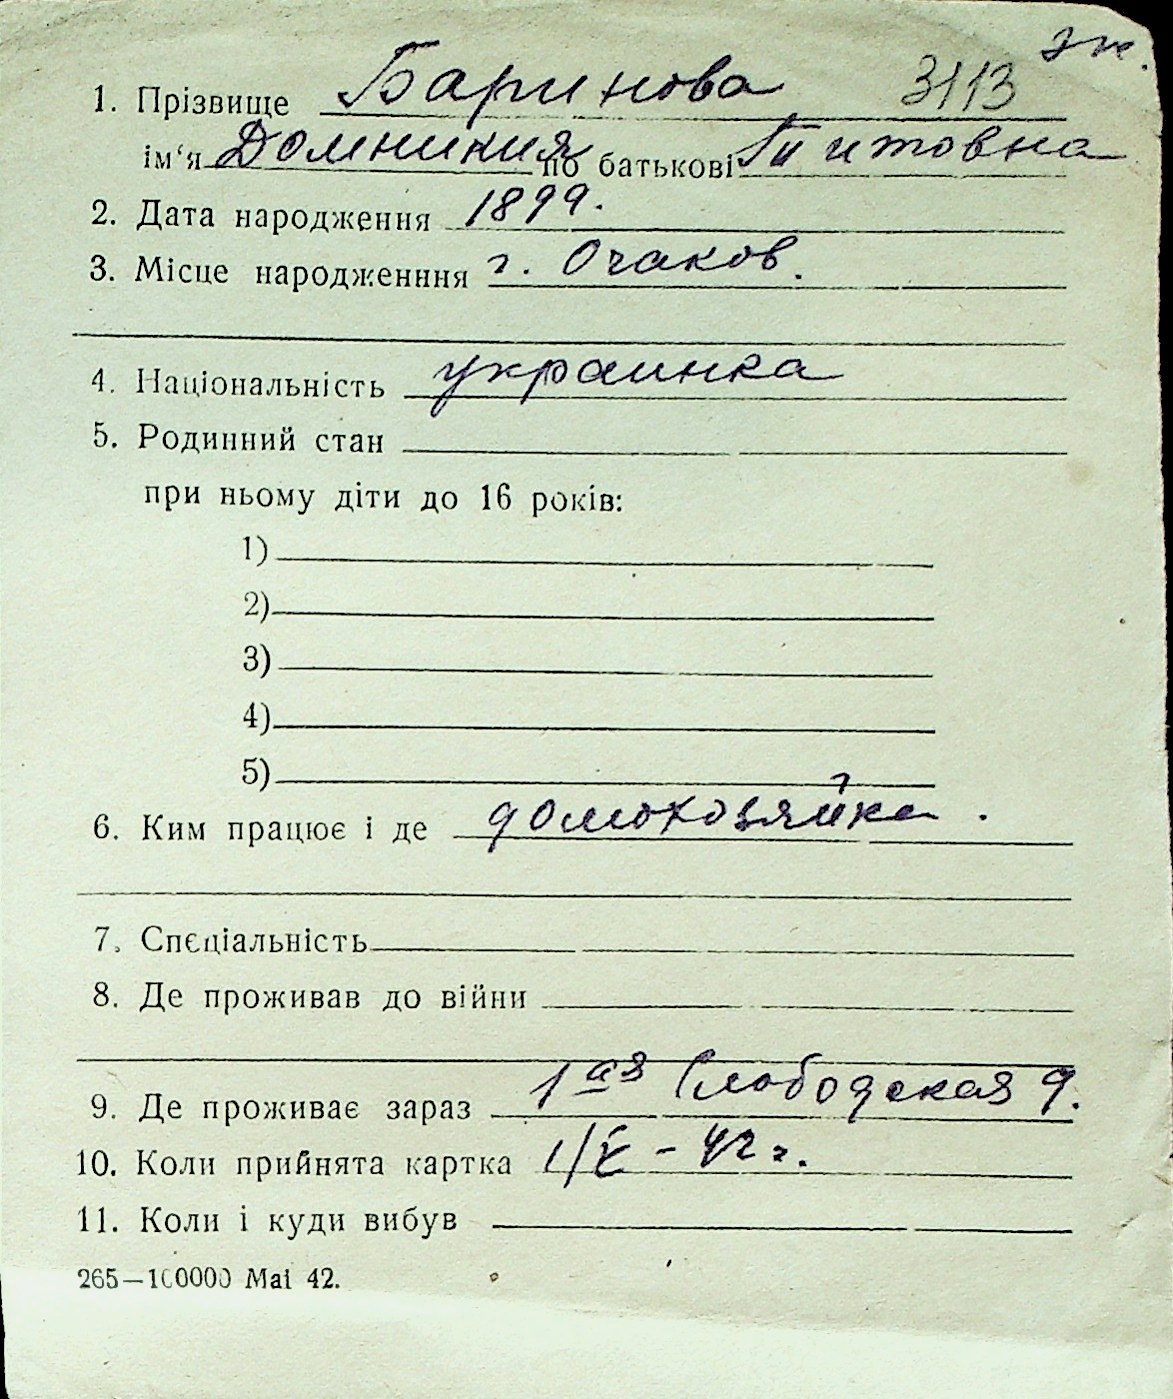 эк.
1. Прізвище Баринова 3113
ім‘я Домникия по батькові Титовна
2. Дата народження 1899.
3. Місце народженння г. Очаков.
4. Національність украинка
5. Родинний стан
при ньому діти до 16 років:
1)
2)
3)
4)
5)
6. Ким працює і де домохозяйка.
7. Спєціальність
8. Де проживав до війни
9. Де проживає зараз 1ая Слободская 9.
10. Коли прийнята картка 1/X - 42 г.
11. Коли і куди вибув
265—100000 Mai 42.